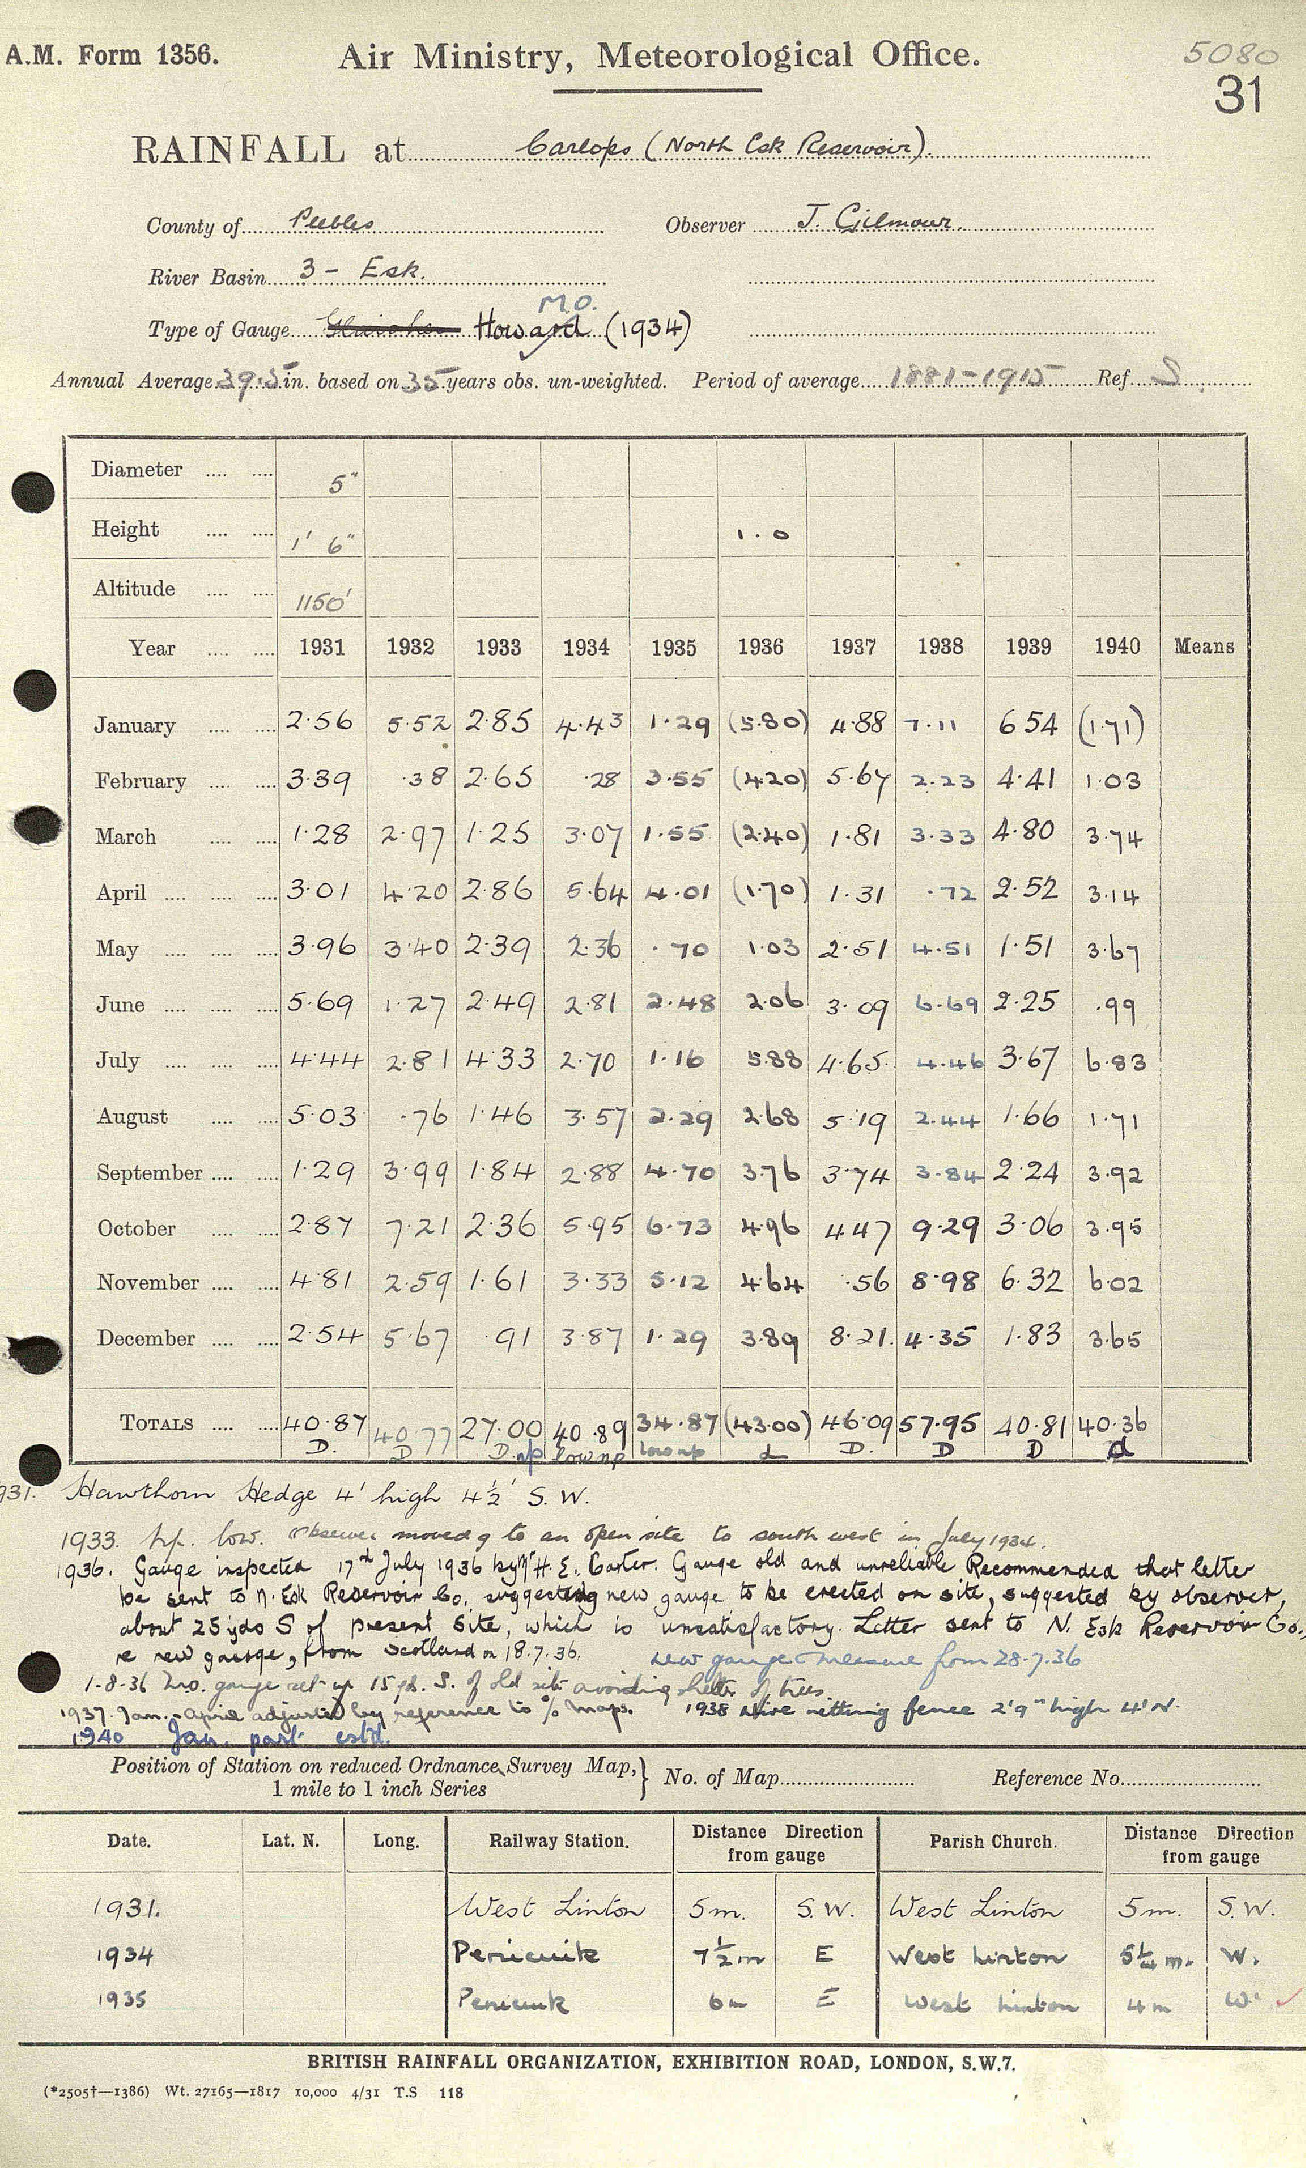 A.M. Form 1356. Air Ministry, Meteorological Office. 5080
31
RAINFALL at Carlops (North Esk Reservoir).
County of Peebles Observer J. Gilmour
River Basin 3 - Esk.
M.O.
Type of Gauge Howard (1934)
Annual Average 39.5 in. based on 35 years obs. un-weighted. Period of average 1881-1915 Ref. S
Diameter 5"
Height 1' 6" 1.0
Altitude 1150'
Year 1931 1932 1933 1934 1935 1936 1937 1938 1939 1940 Means
January 2.56 5.52 2.85 4.43 1.29 (5.80) 4.88 7.11 6.54 (1.71)
February 3.39 .38 2.65 .28 3.55 (4.20) 5.67 2.23 4.41 1.03
March 1.28 2.97 1.25 3.07 1.55 (2.40) 1.81 3.33 4.80 3.74
April 3.01 4.20 2.86 5.64 4.01 (1.70) 1.31 .72 2.52 3.14
May 3.96 3.40 2.39 2.36 .70 1.03 2.51 4.51 1.51 3.67
June 5.69 1.27 2.49 2.81 2.48 2.06 3.09 6.69 2.25 .99
July 4.44 2.81 4.33 2.70 1.16 5.88 4.65 4.46 3.67 6.83
August 5.03 .76 1.46 3.57 2.29 2.68 5.19 2.44 1.66 1.71
September 1.29 3.99 1.84 2.88 4.70 3.76 3.74 3.84 2.24 3.92
October 2.87 7.21 2.36 5.95 6.73 4.96 4.47 9.29 3.06 3.95
November 4.81 2.59 1.61 3.33 5.12 4.64 .56 8.98 6.32 6.02
December 2.54 5.67 .91 3.87 1.29 3.89 8.21 4.35 1.83 3.65
TOTALS 40.87 40.77 27.00 40.89 34.87 (43.00) 46.09 57.95 40.81 40.36
D. D D. np low np low np d D. D D d
1931. Hawthorn Hedge 4' high 4½' S.W.
1933. low. Observer moved g to an open site to south west in July 1934.
1936. Gauge inspected 17th July 1936 by Mr H. E. Carter. Gauge old and unreliable Recommended that letter
be sent to N. Esk Reservoir Co. suggesting new gauge to be erected on site, suggested by observer,
about 25 yds S of present site, which is unsatisfactory. Letter sent to N. Esk Reservoir Co.,
re new gauge, from Scotland on 18.7.36. new gauge measure from 28.7.36
1-8-36 M.O. gauge set up 15 yd. S. of old site avoiding shelter of trees.
1937 Jan.-April adjusted by reference to % maps. 1938 Wire netting fence 2'9" high 4' N.
1940 Jan. part est'd.
Position of Station on reduced Ordnance Survey Map, 1 mile to 1 inch Series } No. of Map Reference No.
Date. Lat. N. Long. Railway Station. Distance Direction from gauge Parish Church. Distance Direction from gauge
1931. West Linton 5m. S.W. West Linton 5m. S.W.
1934 Penicuik 7½m E West Linton 5¼m. W.
1935 Penicuik 6m E West Linton 4m W.
BRITISH RAINFALL ORGANIZATION, EXHIBITION ROAD, LONDON, S.W.7.
(*2505†—1386) Wt. 27165—1817 10,000 4/31 T.S 118